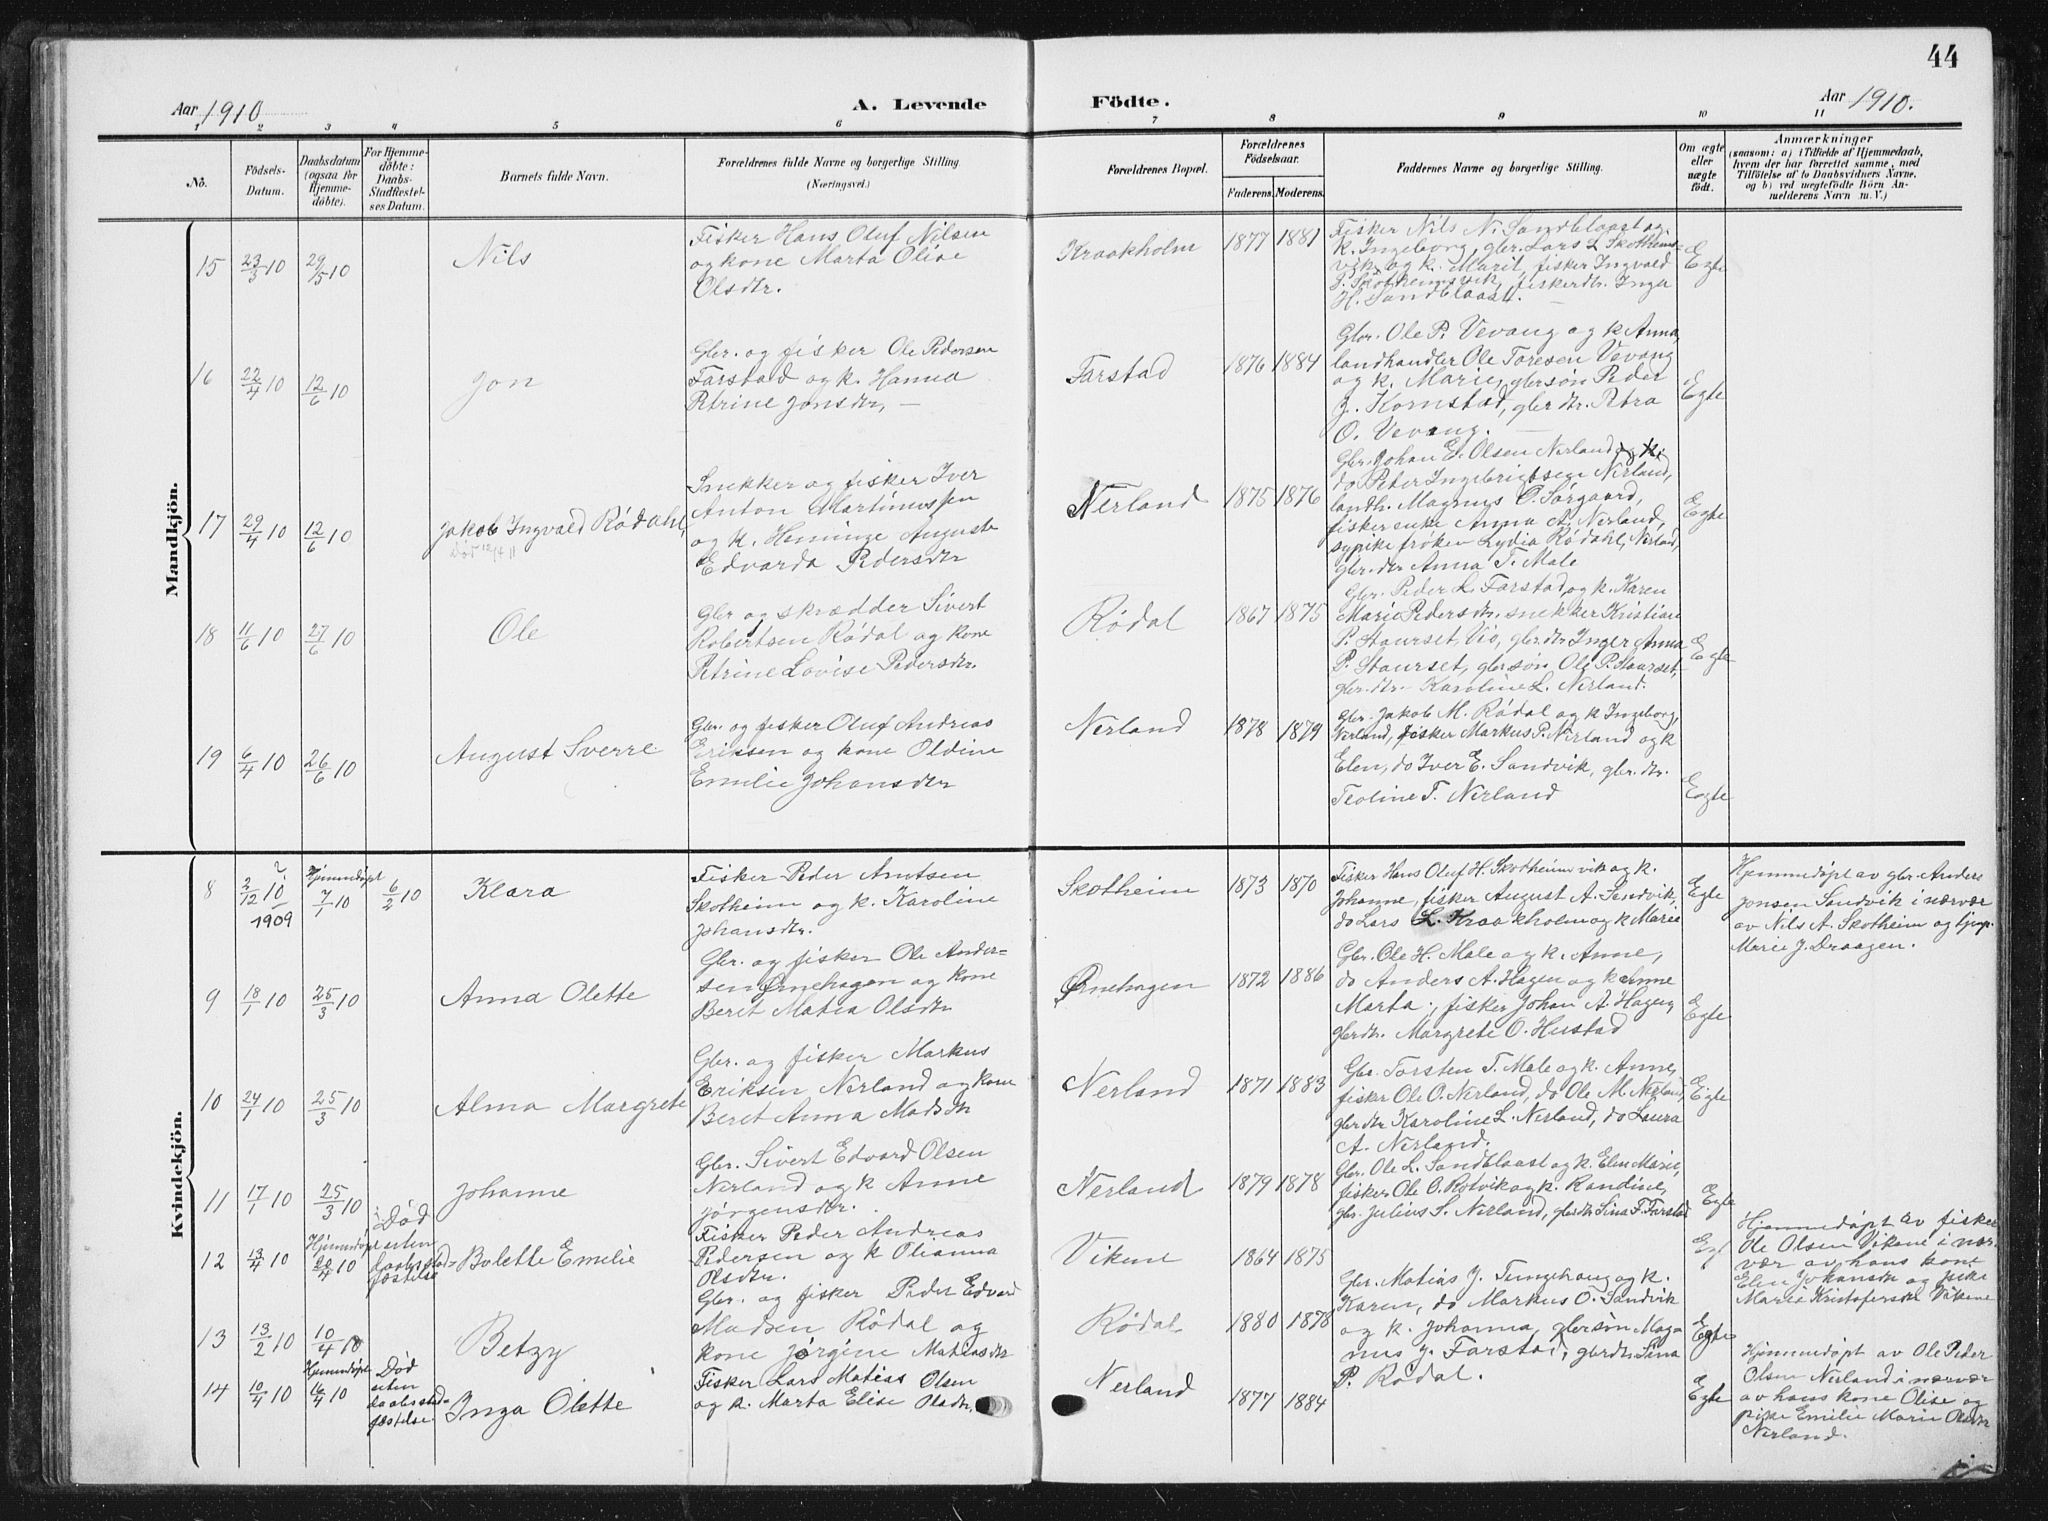 44
Aar 1910
A. Levende
Födte.
Aar 1910.
1 2 3 4 5 6 7 8 9 10 11
No.
Födsels-
Datum.
Daabsdatum
(ogsaa for
Hjemme-
döbte).
For Hjemme-
döbte:
Daabs-
Stadfestel-
ses Datum.
Barnets fulde Navn.
Forældrenes fulde Navne og borgerlige Stilling.
(Næringsvei.)
Forældrenes Bopæl.
Forældrenes
Födselsaar.
Faderens. Moderens.
Faddernes Navne og borgerlige Stilling.
Om ægte
eller
uægte
født.
Anmærkninger
(saasom: a) i Tilfælde af Hjemmedaab,
hvem der har forrettet samme, med
Tilföielse af to Daabsvidners Navne,
og b) ved uegtefödte Börn An-
melderens Navn m.V.)
Mandkjön.
15 23/3 10 29/5 10 Nils
Fisker Hans Oluf Nilsen
og kone Marta Olise
Olsdtr.
Kraakholm 1877 1881
Fisker Nils N. Sandblaast og
k. Ingeborg, gbr. Lars L Skotheims-
vik og k. Marit, fisker Ingvald
P. Skotheimsvik, fiskerdtr. Inga
H. Sandblaast.
Egte
16 22/4 10 12/6 10 Jon
Gbr. og fisker Ole Pedersen
Farstad og k. Hanna
Petrine Jonsdtr. —
Farstad 1876 1884
Gbr. Ole P. Vevang og k Anna,
landhandler Ole Toresen Vevang
og k. Marie, gbrsøn Peder
J. Kornstad, gbr dtr. Petra
O. Vevang.
Egte
17 29/4 10 12/6 10 Jakob Ingvald Rødahl,
Død 12/4 11
Snekker og fisker Iver
Anton Martinussen
og k. Heminge Auguste
Edvarda Pedersdtr
Nerland 1875 1876
Gbr. Johan E. Olsen Nerland og k,
do Peter Ingebrigtsen Nerland,
landh. Magnus O. Sørgaard,
fiskerenke Anna A. Nerland,
sypike frøken Lydia Rødahl, Nerland,
gbr. dtr Anna T. Male
Egte
18 11/6 10 27/6 10 Ole
Gbr og skrædder Sivert
Robertsen Rødal og kone
Petrine Lovise Pedersdtr.
Rødal 1867 1875
Gbr. Peder L. Farstad og k. Karen
Marie Pedersdtr. snekker Kristian
P. Staurset, Vio, gbr.dtr Inger Anna
P. Staurset, gbrsøn Ole P. Staurset,
gbr.dtr. Karoline L. Nerland.
Egte
19 6/4 10 26/6 10 August Sverre
Gbr. og fisker Oluf Andreas
Eriksen og kone Oldine
Emilie Johansdtr
Nerland 1878 1879
Gbr. Jakob M. Rødal og k Ingeborg,
Nerland, fisker Markus P. Nerland og k
Elen, do Iver E. Sandvik, gbr. dtr.
Teoline T. Nerland
Egte
Kvindekjön.
8 2/12 10 1909 Hjemmedøpt 7/1 10 6/2 10 Klara
Fisker Peder Amtsen
Skotheim og k. Karoline
Johansdtr.
Skotheim 1873 1870
Fisker Hans Oluf H. Skotheimsvik og k.
Johanne, fisker August A. Sandvik,
do Lars L. Kraakholm og k Marie
Egte
Hjemmedøpt av gbr. Anders
Jonsen Sandvik i nærvær
av Nils A. Skotheim og
Marie J. Draagen.
9 18/1 10 25/3 10 Anna Olette
Gbr. og fisker Ole Ander-
sen Ørnehagen og kone
Beret Matea Olsdtr
Ørnehagen 1872 1886
Gbr. Ole H. Male og k. Anne,
do Anders A. Hagen og k Anne
Marta, fisker Johan A. Hagen,
gbrdtr. Margrete O. Hustad
Egte
10 24/1 10 25/3 10 Alma Margrete
Gbr. og fisker Markus
Eriksen Nerland og kone
Beret Anna Madsdtr
Nerland 1871 1883
Gbr. Torsten T. Male og k. Anne,
fisker Ole O. Nerland, do Ole M. Nerland,
gbr dtr Karoline L. Nerland, do Laura
A. Nerland.
Egte
11 17/1 10 25/3 10 Johanne
Gbr. Sivert Edvard Olsen
Nerland og k Anne
Jørgensdtr.
Nerland 1879 1878
Gbr. Ole L. Sandblaast og k. Elen Marie,
fisker Ole O. Rotvik og k. Randine,
gbr. Julius S. Nerland, gbrdtr Sina F. Farstad
Egte
12 13/4 10 Hjemmedøpt 20/4 10
Død
uten
daabsstad-
fæstelse
Bolette Emilie
Fisker Peder Andreas
Pedersen og k Olianna
Olsdtr.
Vikene 1864 1875
Egt
Hjemmedøpt av fisker
Ole Olsen Vikene i nær-
vær av hans kone
Elen Johansdtr og pike
Marie Kristofersdtr Vikene
13 13/2 10 10/4 10 Betzy
Gbr. og fisker Peder Edvard
Madsen Rødal og
kone Jørgine Matiasdtr
Rødal 1880 1878
Gbr. Matias J. Tungehaug og k.
Karen, do Markus O. Sandvik
og k. Johanna, gbrsøn Mag-
nus J. Farstad, gbrdtr. Sina
P. Rødal.
Egte
14 10/4 10 Hjemmedøpt 16/4 10
Død
uten
daabsstad-
fæstelse.
Inga Olette
Fisker Lars Matias Olsen
og k. Marta Elise Olsdtr,
Nerland 1877 1884
Egte
Hjemmedøpt av Ole Peder
Olsen Nerland i nærvær
av hans kone Olise og
pike Emilie Marie Olsdtr
Nerland.